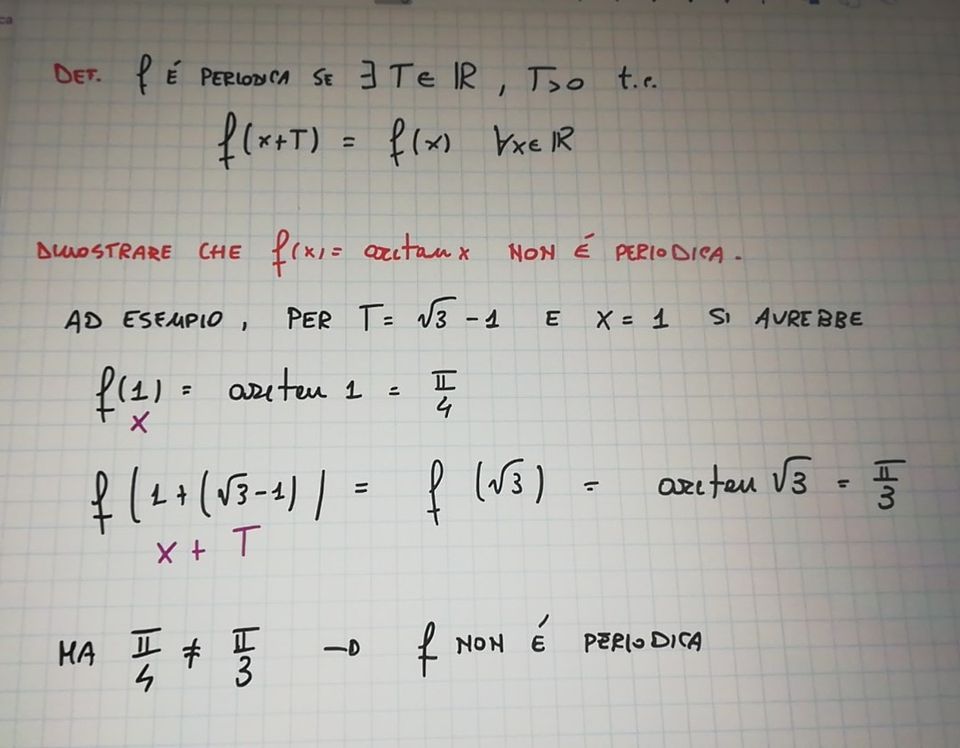 ca
DEF. f É PERIODICA SE ∃ T ∈ ℝ, T>0 t.c.
f(x+T) = f(x) ∀x∈ℝ
DIMOSTRARE CHE f(x)= arctan x NON É PERIODICA.
AD ESEMPIO, PER T= √3 -1 E X = 1 SI AVREBBE
f(1) = arctan 1 = π/4
X
f(1+(√3-1)) = f(√3) = arctan √3 = π/3
X + T
MA π/4 ≠ π/3 → f NON É PERIODICA